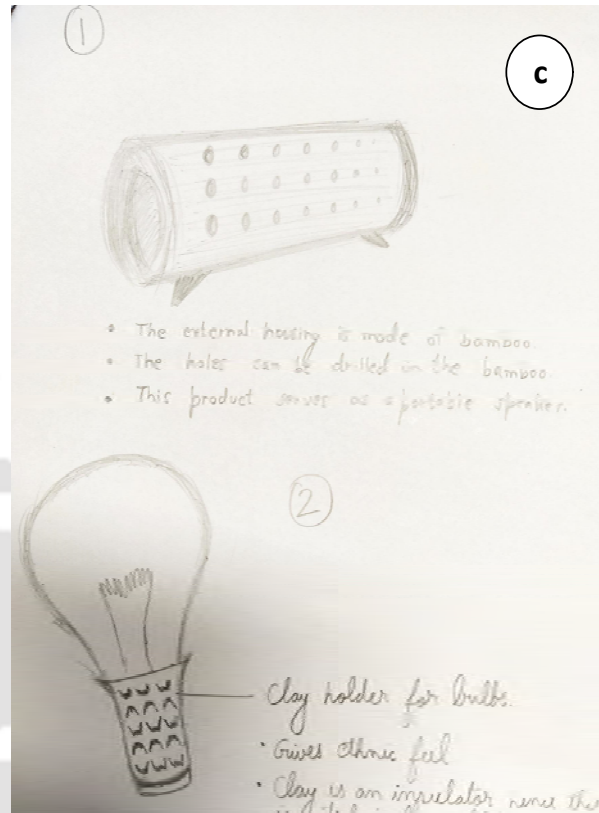 1
C
• The external housing is made of bamboo.
• The holes can be drilled in the bamboo.
• This product serves as a portable speaker.
2
Clay holder for bulbs.
• Gives ethnic feel
• Clay is an insulator hence